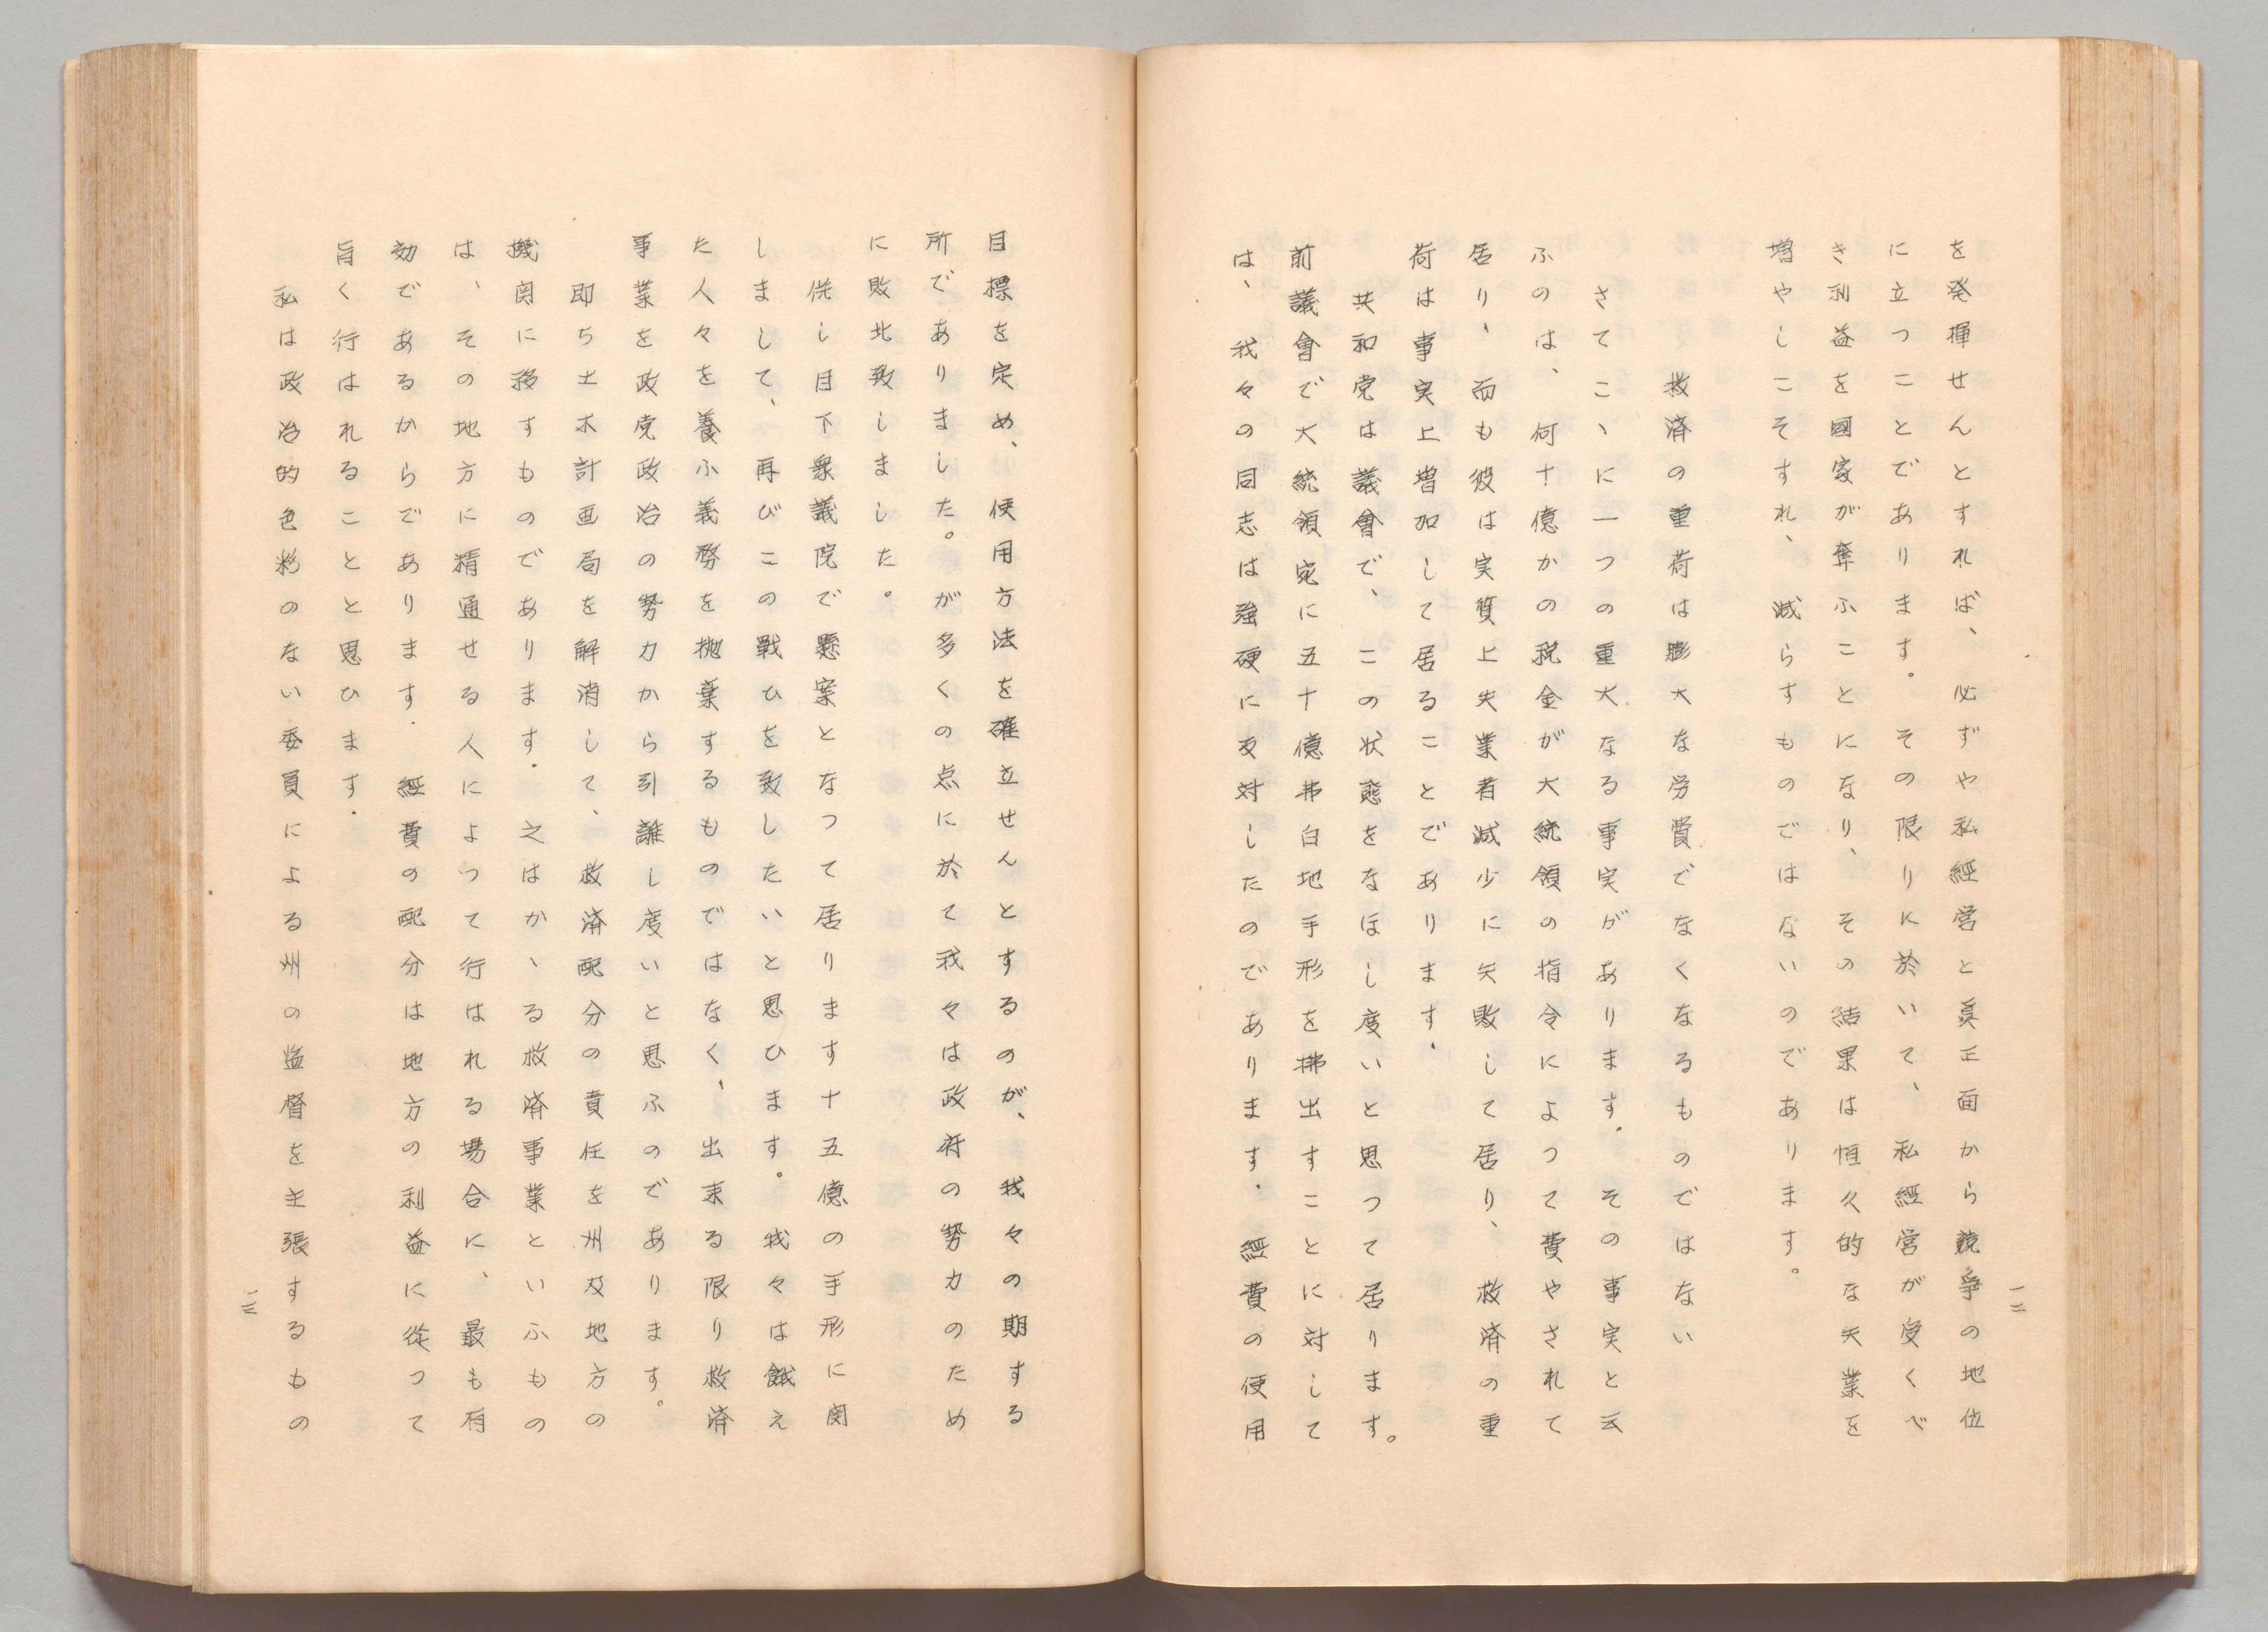 を発揮せんとすれば、必ずや私經営と眞正面から競爭の地位
に立つことであります。その限りに於いて、私經営が受くべ
き利益を國家が奪ふことになり、その結果は恒久的な失業を
増やしこそすれ、減らすものではないのであります。
救済の重荷は膨大な労費でなくなるものではない
さてこゝに一つの重大なる事実があります。その事実と云
ふのは、何十億かの税金が大統領の指令によつて費やされて
居り、而も彼は実質上失業者減少に失敗して居り、救済の重
荷は事実上増加して居ることであります。
共和党は議會で、この状態をなほし度いと思つて居ります。
前議會で大統領宛に五十億弗白地手形を拂出すことに対して
は、我々の同志は強硬に反対したのであります。經費の使用
一二
目標を定め、使用方法を確立せんとするのが、我々の期する
所でありました。が多くの点に於て我々は政府の勢力のため
に敗北致しました。
併し目下衆議院で懸案となつて居ります十五億の手形に関
しまして、再びこの戦ひを致したいと思ひます。我々は餓え
た人々を養ふ義務を抛棄するものではなく、出来る限り救済
事業を政党政治の勢力から引離し度いと思ふのであります。
即ち土木計画局を解消して、救済配分の責任を州及地方の
機関に移すものであります。之はかゝる救済事業といふもの
は、その地方に精通せる人によつて行はれる場合に、最も有
効であるからであります。經費の配分は地方の利益に從つて
旨く行はれることと思ひます。
私は政治的色彩のない委員による州の監督を主張するもの
一三